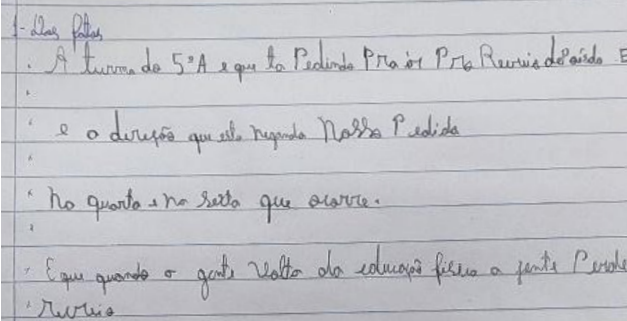 1- Das fatos
A turma do 5ºA e que ta Pedindo Pra ir Pro Recreio E
e a direção que esta negando Nossa Pedida
na quarta e na sexta que ocorre.
E que quando a gente Volta da educação física a gente Perde
recreio